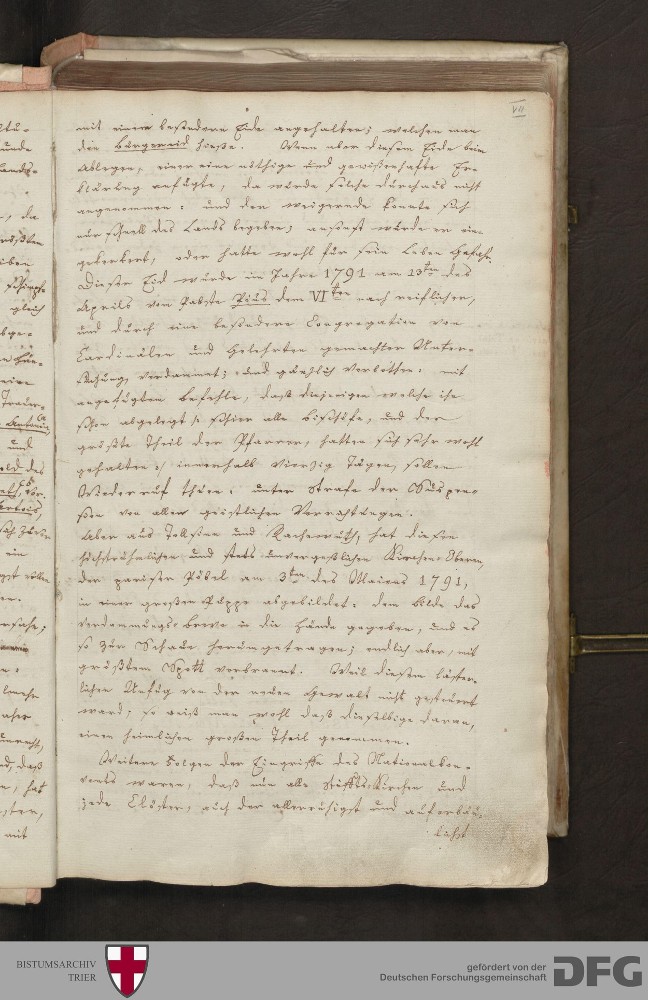 VII
mit einem besondern Eide angehalten; welchen man
den Bürgereid hiesse. Wenn aber diesem Eide beim
Ablegen, einer eine nöthige und gewissenhafte Er-
klärung anfügte, da wurde solche durchaus nicht
angenommen: und der weigernde konnte sich
nur schnell des Lands begeben; ansonst wurde er ein-
gekerkert, oder hatte wohl für sein Leben Gefahr.
Dieser Eid wurde im Jahre 1791 am 13ten des
Aprils vom Pabste Pius dem VIten nach reiflicher,
und durch eine besondere Congregation von
Cardinälen und Gelehrten gemachter Unter-
suchung verdammet; und gänzlich verbothen: mit
angefügten Befehle, dass diejenigen welche ihn
schon abgelegt /: schier alle Bischöfe, und der
größte Theil der Pfarrer, hatten sich sehr wohl
gehalten :/ innerhalb vierzig Tägen, sollen
Wiederruf thuen: unter Strafe der Suspen-
sion von allen geistlichen Verrichtungen.
Aber aus Tollsinn und Rachewuth, hat diesen
höchstrühmlichen und stets unvergesslichen Kirchen-Obern,
der pariser Pöbel am 3ten des Maies 1791,
in einer großen Puppe abgebildet: dem Bilde das
Verdammungs-breve in die Hände gegeben, und es
so zur Schaue herumgetragen; endlich aber, mit
größtem Spott verbrannt. Weil diesem läster-
lichen Unfug von der neuen Gewalt nicht gesteuert
ward; so weiß man wohl dass dieselbige daran,
einen heimlichen großen Theil genommen.
Weitere Folgen der Eingriffe des Nationalkon-
vents waren, daß nun alle Stiffts-Kirchen und
jede Clöster, auch der allerruhigst und auferbäu-
lichst
BISTUMSARCHIV
TRIER
gefördert von der
Deutschen Forschungsgemeinschaft
DFG